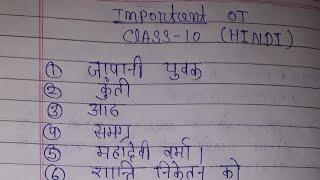 Important OT
CLASS-10 (HINDI)
① जापानी युवक
② कुंती
③ आठ
④ समग्र
⑤ महादेवी वर्मा।
⑥ शान्ति निकेतन को